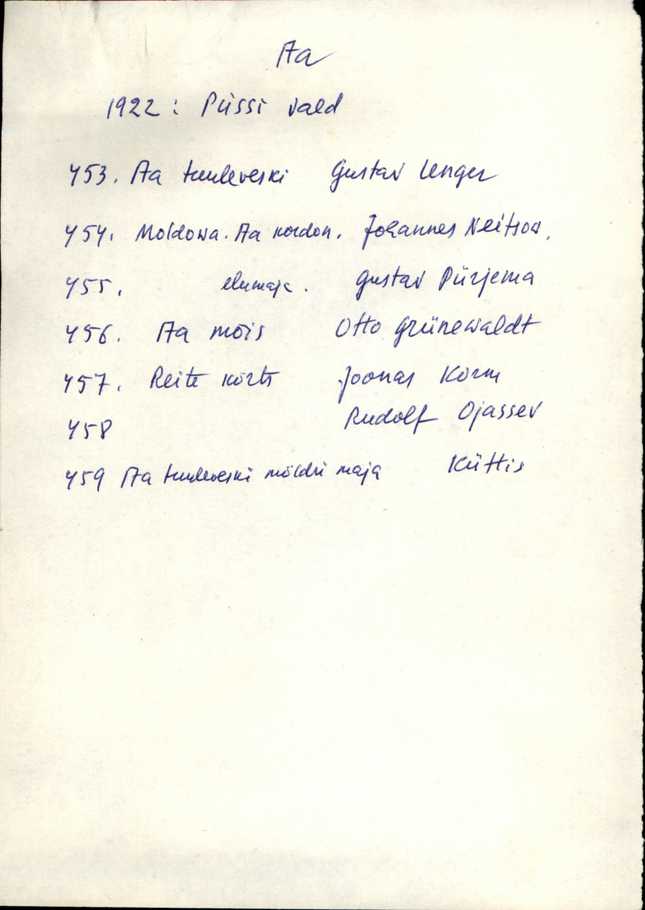 Aa
1922: Püssi vald
453. Aa tuuleveski Gustav Unger
454. Moldowa. Aa kordon. Johannes
455. elumaja. Gustav Pürjema
456. Aa mõis Otto Grünewaldt
457. Reite kõrts Joonas Korm
458 Rudolf Ojassev
459 Aa tuuleveski möldri maja Küttis